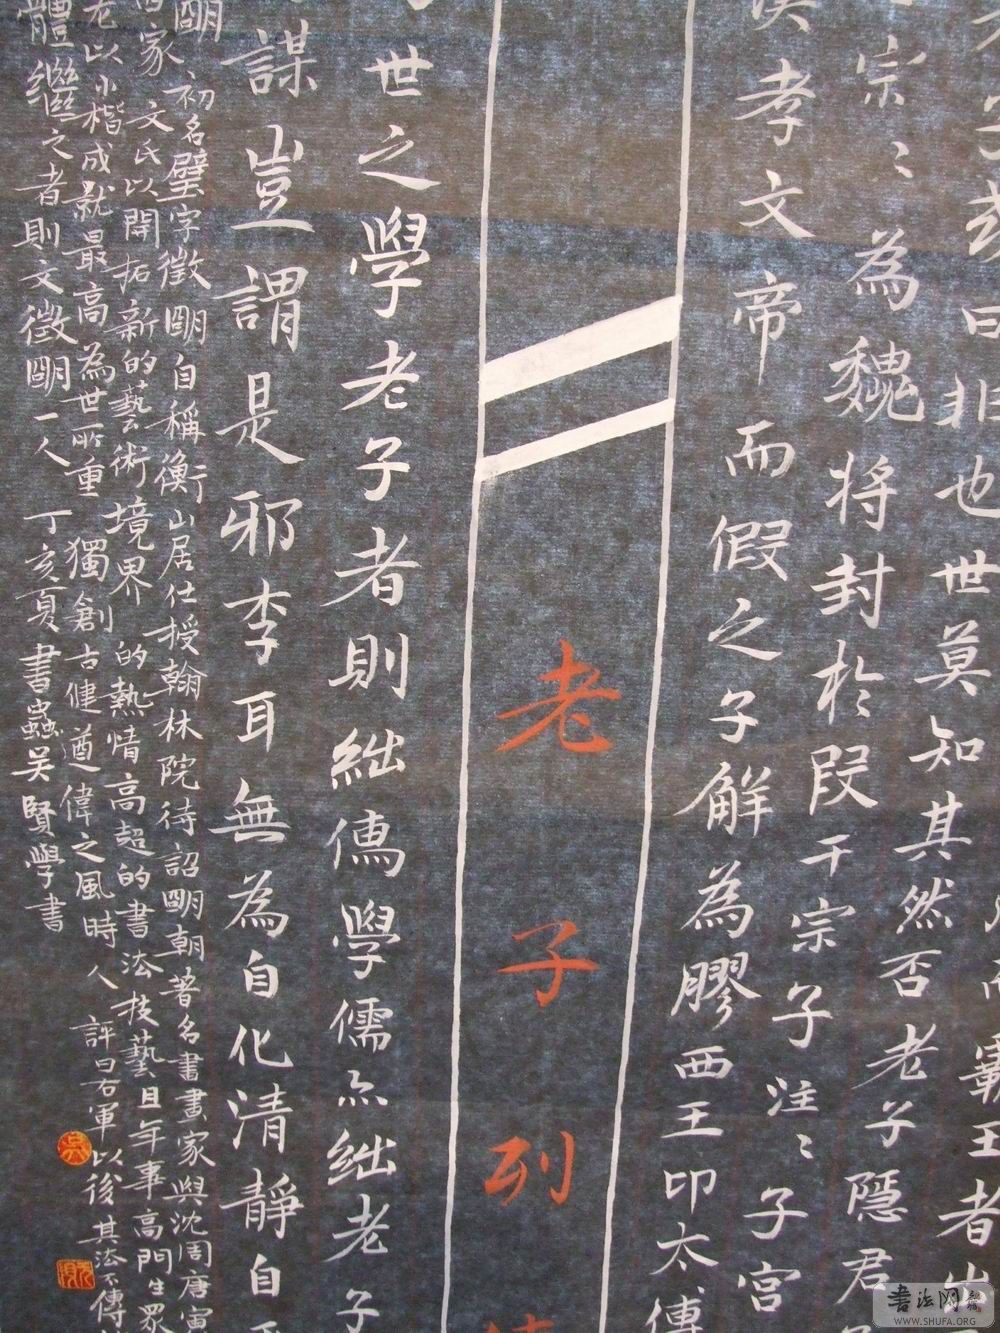 曰非也世莫知其然否老子隱君
宗〻為魏將封於段干宗子注〻子宮
孝文帝而假之子解為膠西王卬太傅
老子列
世之學老子者則絀儒學儒學亦絀老子
謀豈謂是邪李耳無為自化清靜自
初名璧字徵明自稱衡山居仕授翰林院待詔明朝著名書畫家與沈周唐寅
家文氏以開拓新的藝術境界的熱情高超的書法技藝且年事高門生眾
老以小楷成就最高為世所重獨創古健遒偉之風時人評曰右軍以後其法不傳
體繼之者則文徵明一人丁亥夏書蟲吴賢學書
書法网
WWW.SHUFA.ORG